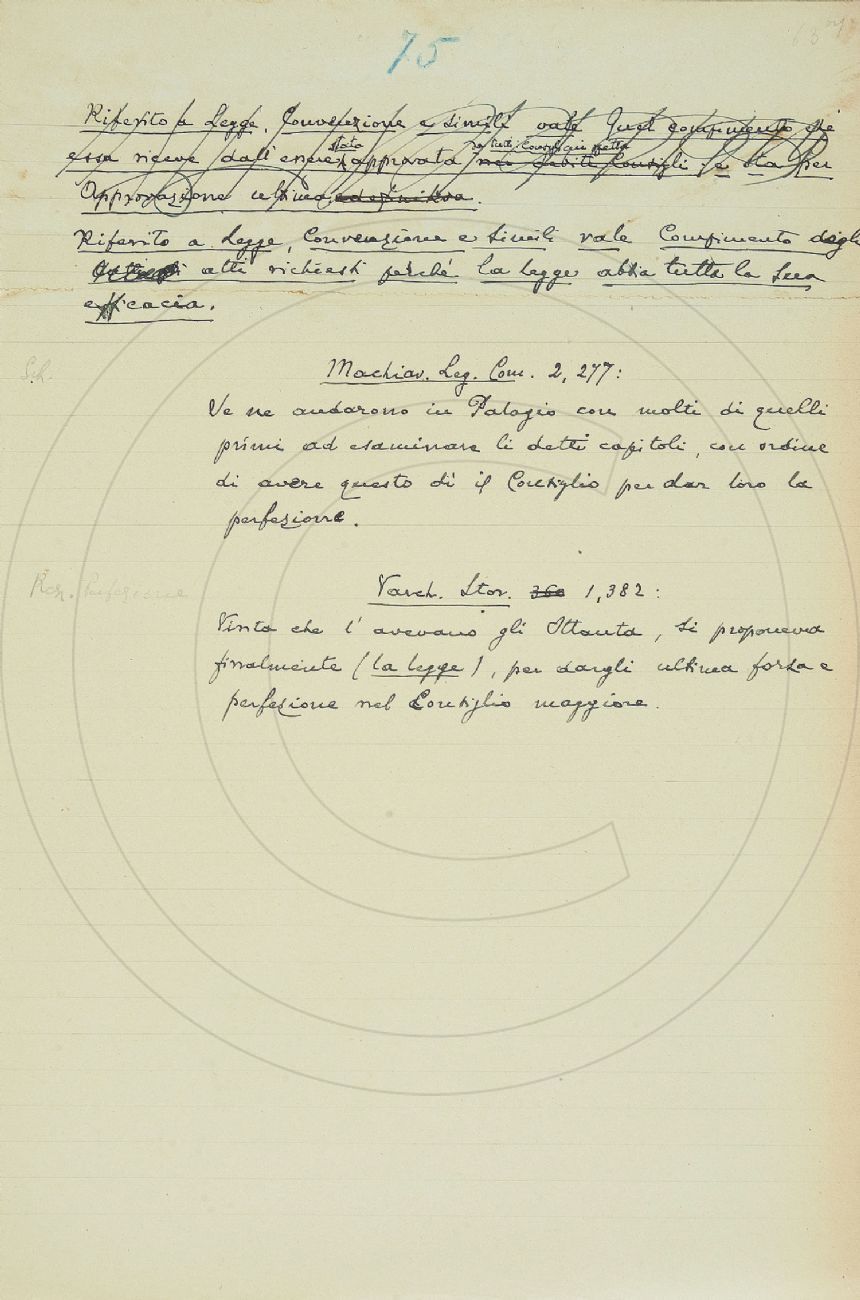 75
Riferito a Legge, Convenzione e simili vale Quel compimento che
stata da tutti Consigli cui spetta
essa riceve dall'essere approvata nei debiti Consigli e sta per
Approvazione ultima ed definitiva.
Riferito a Legge, Convenzione e simili vale Compimento degli
atti richiesti perché la legge abbia tutta la sua
efficacia.
Machiav. Leg. Com. 2, 277:
Ve ne andarono in Palagio con molti di quelli
primi ad esaminare li detti capitoli, con ordine
di avere questo dì il Consiglio per dar loro la
perfezione.
Varch. Stor. 360 1,382:
Vinta che l'avevano gli Ottanta, si proponeva
finalmente (la legge), per dargli ultima forza e
perfezione nel Consiglio maggiore.
Perfezione